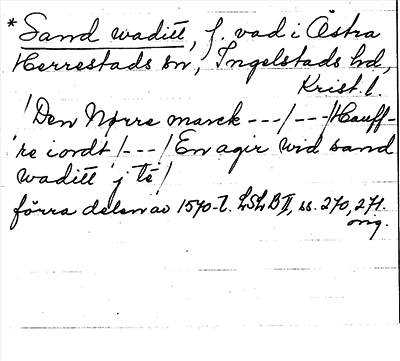 * Sand waditt, f. vad i Östra
Herrestads sn, Ingelstads hd,
Krist. l.
/Den Nørre marck ---/---/Hauff-
re iordt /---/ En agir wid sand
waditt j té/
förra delen av 1570-t. LSLB II, ss. 270, 271.
orig.